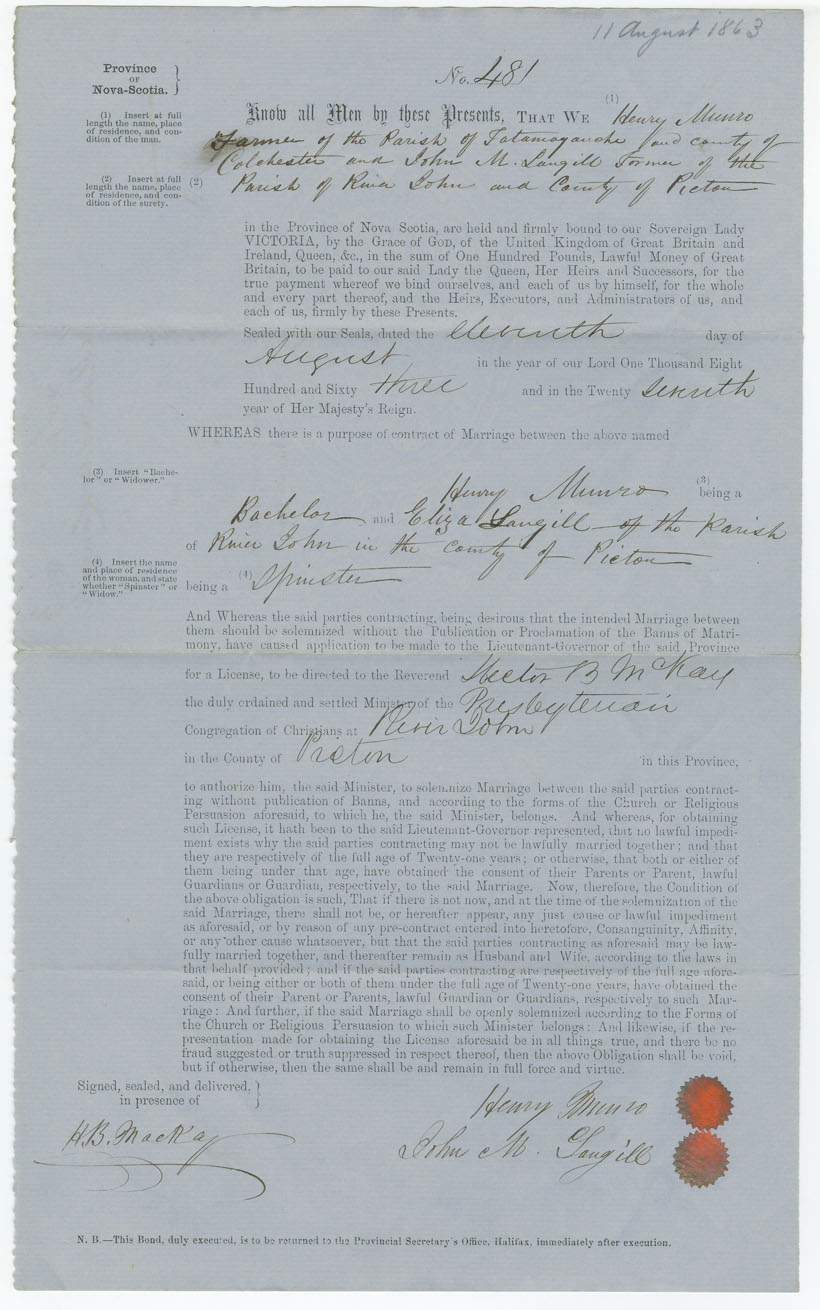 11 August 1863
Province
OF
Nova-Scotia.
No. 481
(1) Insert at full
length the name, place
of residence, and con-
dition of the man.
Know all Men by these Presents, THAT WE (1) Henry Munro
Farmer of the Parish of Tatamagouche and county of
Colchester and John M. Langill Farmer of the
(2) Insert at full
length the name, place
of residence, and con-
dition of the surety.
(2) Parish of River John and County of Pictou
in the Province of Nova Scotia, are held and firmly bound to our Sovereign Lady
VICTORIA, by the Grace of GOD, of the United Kingdom of Great Britain and
Ireland, Queen, &c., in the sum of One Hundred Pounds, Lawful Money of Great
Britain, to be paid to our said Lady the Queen, Her Heirs and Successors, for the
true payment whereof we bind ourselves, and each of us by himself, for the whole
and every part thereof, and the Heirs, Executors, and Administrators of us, and
each of us, firmly by these Presents.
Sealed with our Seals, dated the eleventh day of
August in the year of our Lord One Thousand Eight
Hundred and Sixty three and in the Twenty Seventh
year of Her Majesty's Reign.
WHEREAS there is a purpose of contract of Marriage between the above named
(3) Insert "Bache-
lor" or "Widower."
Henry Munro (3) being a
Bachelor and Eliza Langill of the Parish
of River John in the County of Pictou
(4) Insert the name
and place of residence
of the woman, and state
whether "Spinster" or
"Widow."
being a (4) Spinster
And Whereas the said parties contracting, being desirous that the intended Marriage between
them should be solemnized without the Publication or Proclamation of the Banns of Matri-
mony, have caused application to be made to the Lieutenant-Governor of the said Province
for a License, to be directed to the Reverend Hector B McKay
the duly ordained and settled Minister of the Presbyterian
Congregation of Christians at River John
in the County of Pictou in this Province,
to authorize him, the said Minister, to solemnize Marriage between the said parties contract-
ing without publication of Banns, and according to the forms of the Church or Religious
Persuasion aforesaid, to which he, the said Minister, belongs. And whereas, for obtaining
such License, it hath been to the said Lieutenant-Governor represented, that no lawful impedi-
ment exists why the said parties contracting may not be lawfully married together; and that
they are respectively of the full age of Twenty-one years; or otherwise, that both or either of
them being under that age, have obtained the consent of their Parents or Parent, lawful
Guardians or Guardian, respectively, to the said Marriage. Now, therefore, the Condition of
the above obligation is such, That if there is not now, and at the time of the solemnization of the
said Marriage, there shall not be, or hereafter appear, any just cause or lawful impediment
as aforesaid, or by reason of any pre-contract entered into heretofore, Consanguinity, Affinity,
or any other cause whatsoever, but that the said parties contracting as aforesaid may be law-
fully married together, and thereafter remain as Husband and Wife, according to the laws in
that behalf provided; and if the said parties contracting are respectively of the full age afore-
said, or being either or both of them under the full age of Twenty-one years, have obtained the
consent of their Parent or Parents, lawful Guardian or Guardians, respectively to such Mar-
riage: And further, if the said Marriage shall be openly solemnized according to the Forms of
the Church or Religious Persuasion to which such Minister belongs: And likewise, if the re-
presentation made for obtaining the License aforesaid be in all things true, and there be no
fraud suggested or truth suppressed in respect thereof, then the above Obligation shall be void,
but if otherwise, then the same shall be and remain in full force and virtue.
Signed, sealed, and delivered,
in presence of
Henry Munro
H.B. MacKay
John M. Langill
N. B.—This Bond, duly executed, is to be returned to the Provincial Secretary's Office, Halifax, immediately after execution.